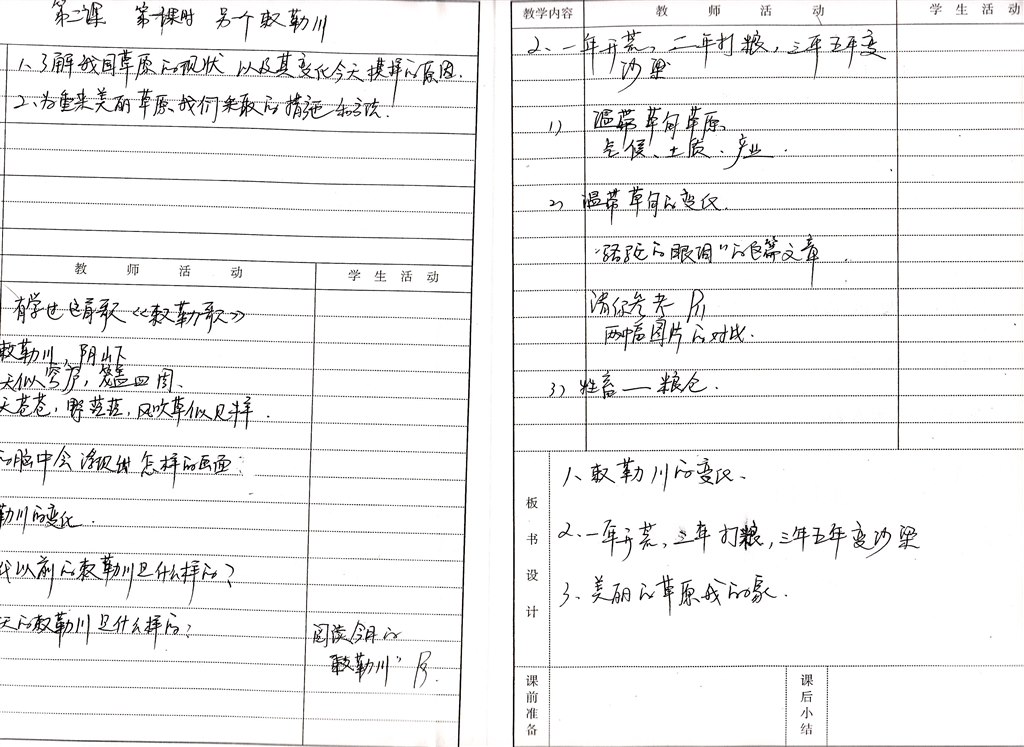 第二课 第一课时 另个敕勒川
1、了解我国草原的现状 以及其变化今天模样的原因.
2、为重来美丽草原我们采取的措施和方法.
教 师 活 动
学 生 活 动
有学过这首歌《敕勒歌》
敕勒川,阴山下
天似穹庐,笼盖四周、
天苍苍,野茫茫,风吹草低见牛羊.
的脑中会浮现出怎样的画面?
勒川的变化.
代以前的敕勒川是什么样的?
天的敕勒川是什么样的?
阅读今日的
敕勒川" P3.
教学内容
教 师 活 动
学 生 活 动
2、一年开荒,二年打粮,三年五年变
沙梁
1) 温带草甸草原
气候、土质、产业.
2) 温带草甸的变化
"骆驼的眼泪"的色篇文章.
请你参考 P1
两幅图片的对比.
3) 牲畜——粮仓.
板书设计
1、敕勒川的变化.
2、一年开荒,二年打粮,三年五年变沙梁
3、美丽的草原我的家.
课前准备
课后小结